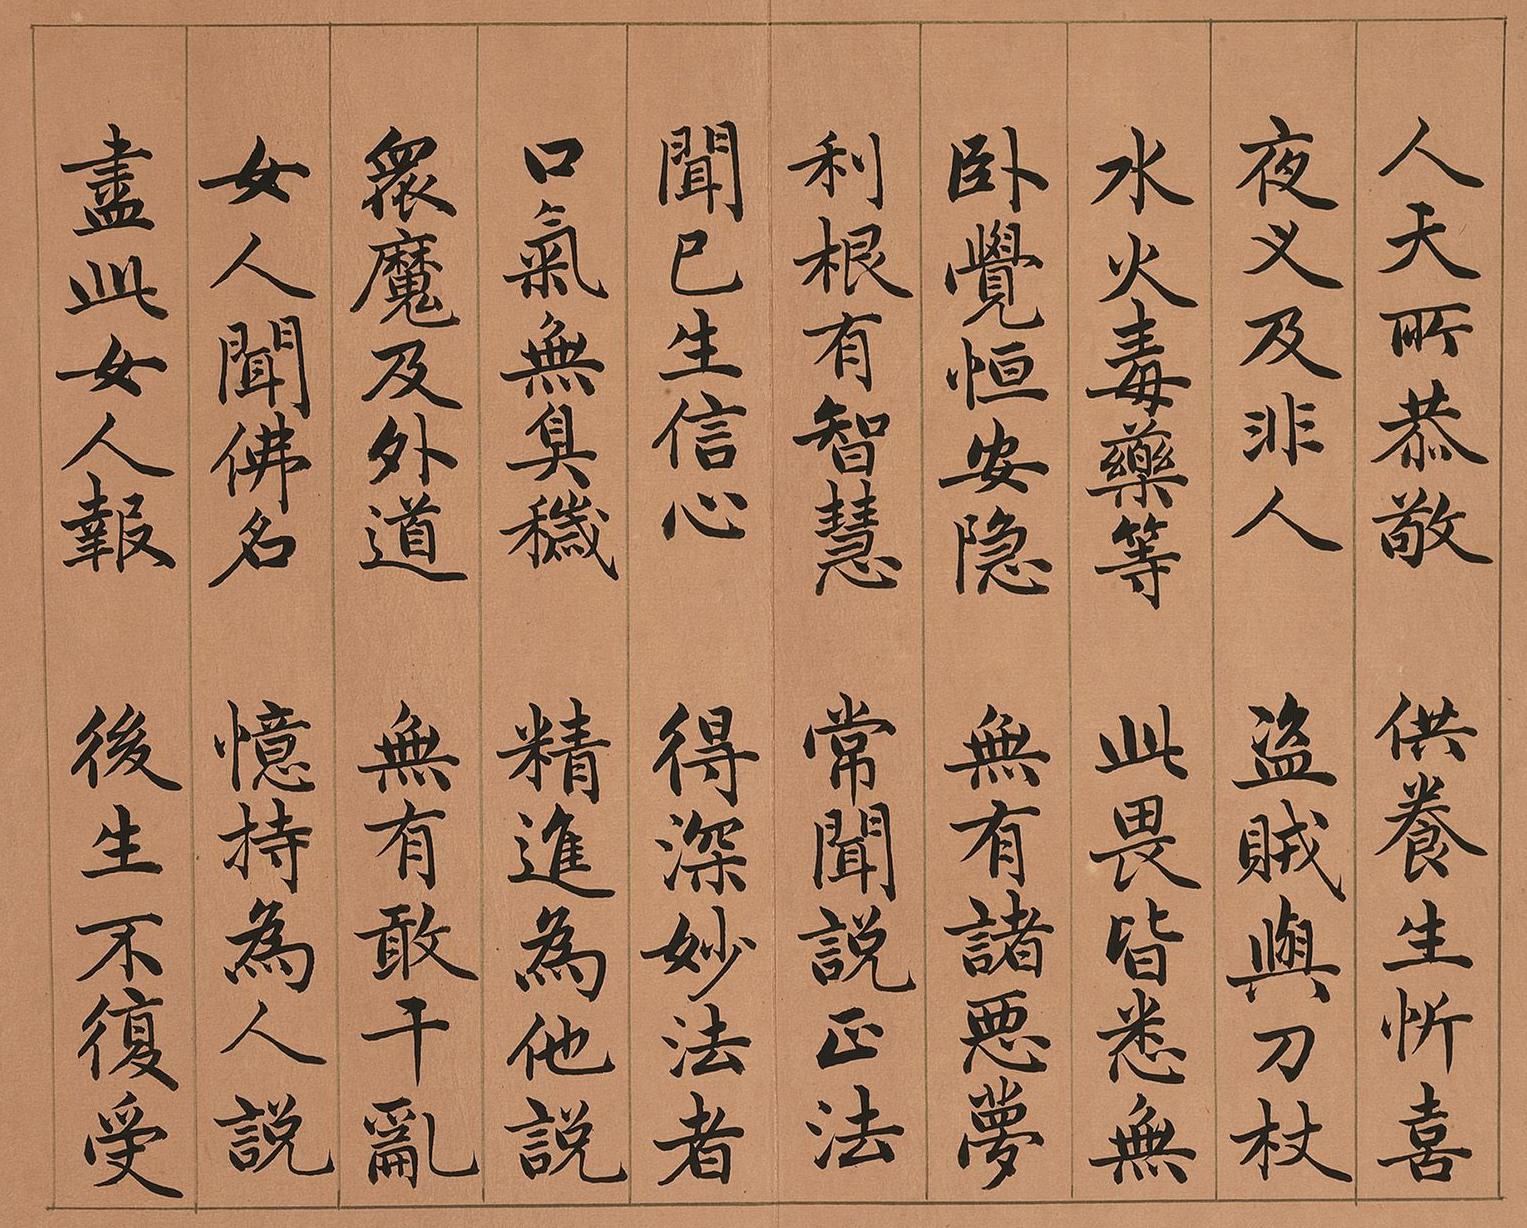 人天所恭敬 供養生忻喜
夜叉及非人 盜賊與刀杖
水火毒藥等 此畏皆悉無
卧覺恒安隐 無有諸惡夢
利根有智慧 常聞説正法
聞已生信心 得深妙法者
口氣無臭穢 精進為他説
衆魔及外道 無有敢干亂
女人聞佛名 憶持為人説
盡此女人報 後生不復受